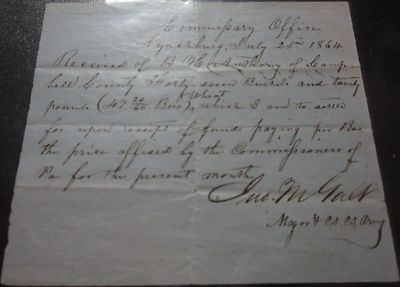 Commissary Office
Lynchburg, July 25th 1864
Received of B H Anthony of Camp-
bell County Forty-seven Bushels and twenty
pounds (47 20/60 Bus) Wheat, which I am to settle
for upon receipt of funds paying per Bus
the price affixed by the Commissioners of
Va for the present month
Jno. M Galt
Major & CS, CS, Army